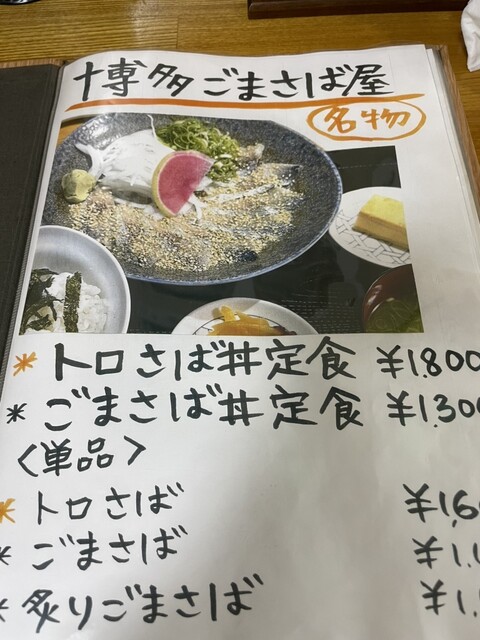 博多ごまさば屋
名物
* トロさば丼定食 ¥1.800
* ごまさば丼定食 ¥1.300
<単品>
* トロさば ¥1,6
* ごまさば ¥1.
* 炙りごまさば ¥1.